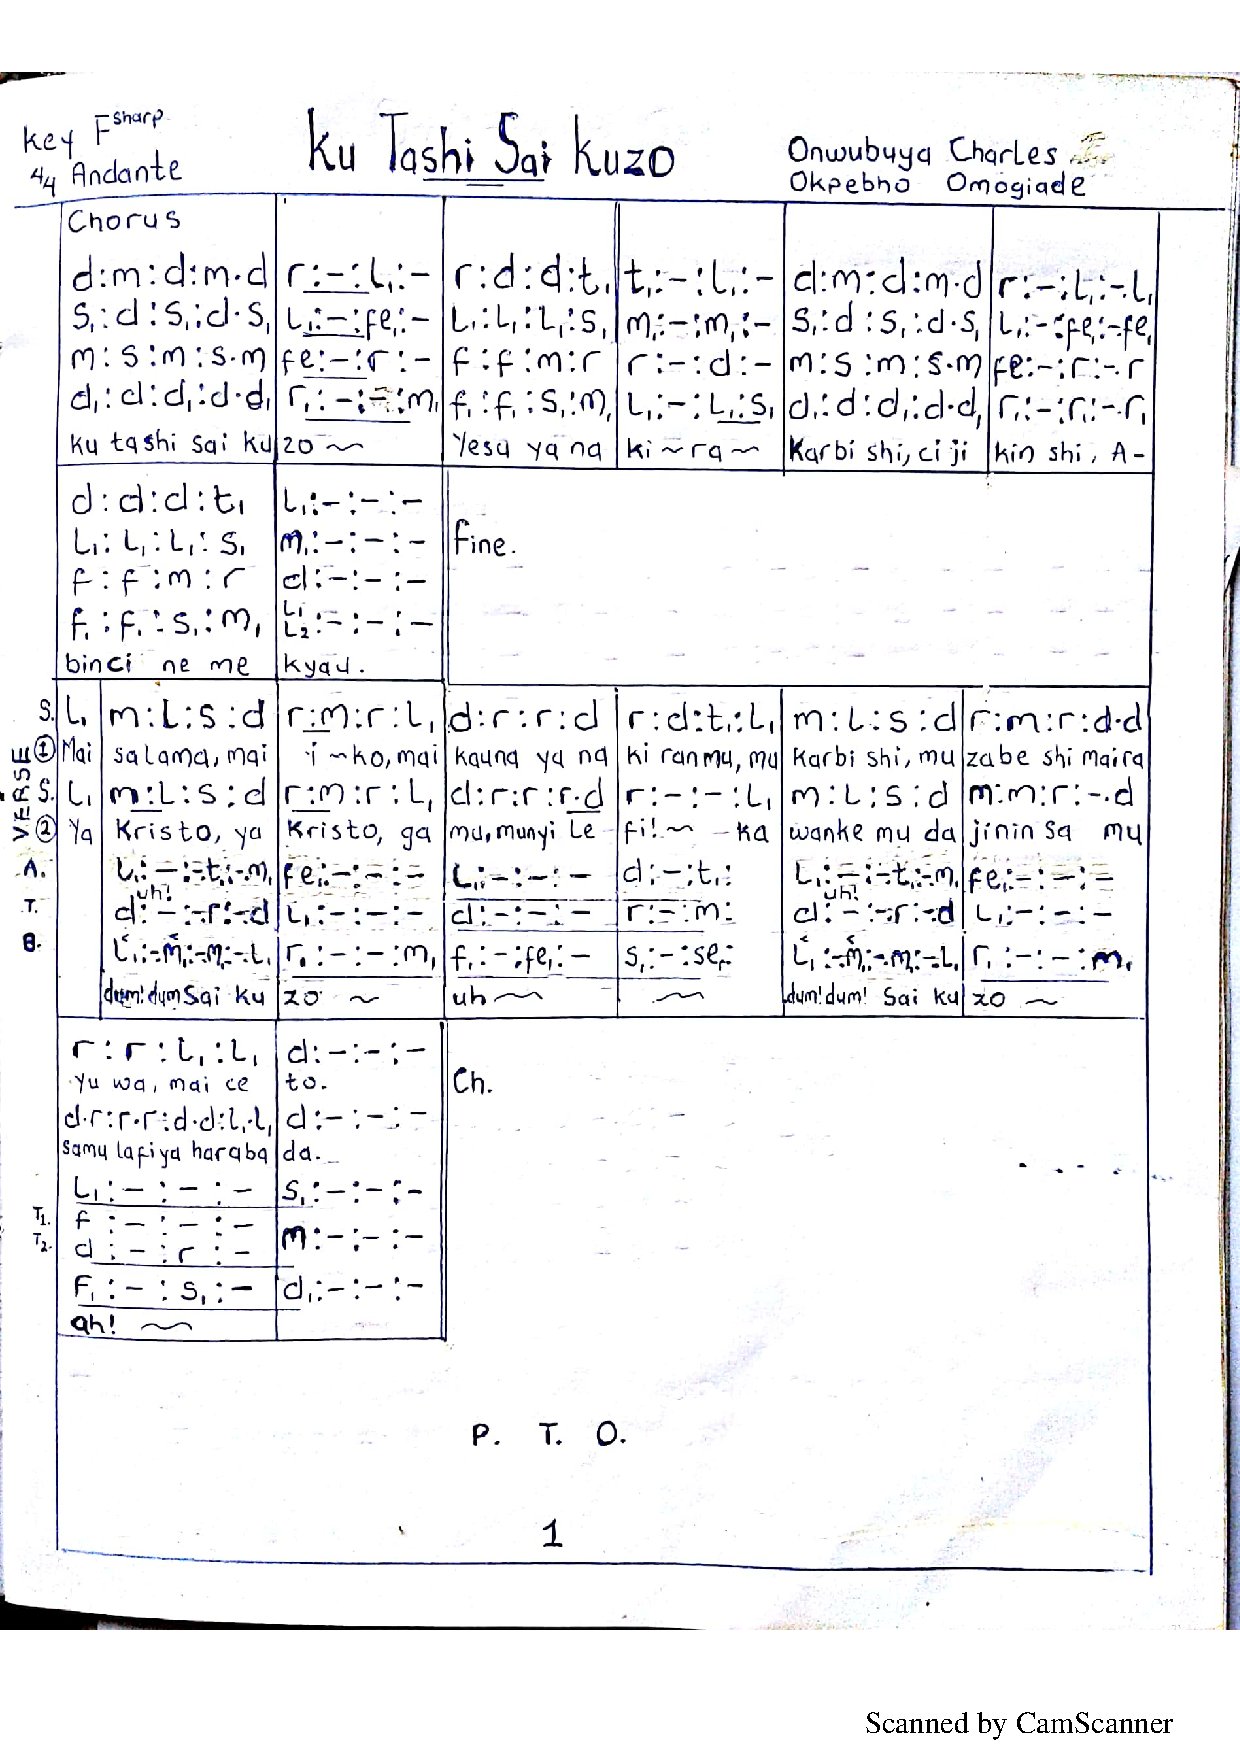 Key F Sharp
4/4 Andante
Ku Tashi Sai Kuzo
Onwubuya Charles
Okpebho Omogiade
Chorus
d:m:d:m.d | r:-:L₁:- | r:d:d:t₁ | t₁:-:L₁:- | d:m:d:m.d | r:-:L₁:-.L₁
S₁:d:S₁:d.S₁ | L₁:-:fe₁:- | L₁:L₁:L₁:S₁ | m₁:-:m₁:- | S₁:d:S₁:d.S₁ | L₁:-:fe₁:-.fe₁
m:s:m:s.m | fe:-:r:- | f:f:m:r | r:-:d:- | m:s:m:s.m | fe:-:r:-.r
d₁:d:d₁:d.d₁ | r₁:-:-:m₁ | f₁:f₁:S₁:m₁ | L₁:-:L₁:S₁ | d₁:d:d₁:d.d₁ | r₁:-:r₁:-.r₁
Ku tashi sai ku | zo ~ | Yesu ya na | ki ~ ra ~ | Karbi shi, ci ji | kin shi, A-
d:d:d:t₁ | L₁:-:-:-
L₁:L₁:L₁:S₁ | m₁:-:-:-
f:f:m:r | d:-:-:-
f₁:f₁:S₁:m₁ | L₁ L₂:-:-:-
binci ne me | kyau.
Fine.
VERSE
S. L₁ | m:L:s:d | r:m:r:L₁ | d:r:r:d | r:d:t₁:L₁ | m:L:s:d | r:m:r:d.d
① Mai | salama, mai | i ~ko, mai | kauna ya na | ki ranmu, mu | Karbi shi, mu | zabe shi maira
S. L₁ | m:L:s:d | r:m:r:L₁ | d:r:r:r.d | r:-:-:L₁ | m:L:s:d | m:m:r:-.d
② Ya | Kristo, ya | Kristo, ga | mu, munyi Le | fi! ~ -ka | wanke mu da | jinin Sa mu
A. L₁:-:-.t₁:-.m₁ | fe₁:-:-:- | L₁:-:-:- | d:-:t₁: | L₁:-:-.t₁:-.m₁ | fe₁:-:-:-
uh! | uh!
T. d:-:-.r:-.d | L₁:-:-:- | d:-:-:- | r:-:m: | d:-:-.r:-.d | L₁:-:-:-
B. L₁:-.m₁:-.m₁:-.L₁ | r₁:-:-:m₁ | f₁:-:fe₁:- | S₁:-:se₁: | L₁:-.m₁:-.m₁:-.L₁ | r₁:-:-:m₁
dum! dum Sai ku | zo ~ | uh ~ | ~ | dum! dum! Sai ku | zo ~
r:r:L₁:L₁ | d:-:-:-
Yu wa, mai ce | to.
d.r:r.r:d.d:L₁.L₁ | d:-:-:-
Samu lafiya haraba | da.
L₁:-:-:- | S₁:-:-:-
T1. f:-:-:-
T2. d:-:r:- | m:-:-:-
F₁:-:S₁:- | d₁:-:-:-
ah! ~
Ch.
P. T. O.
1
Scanned by CamScanner